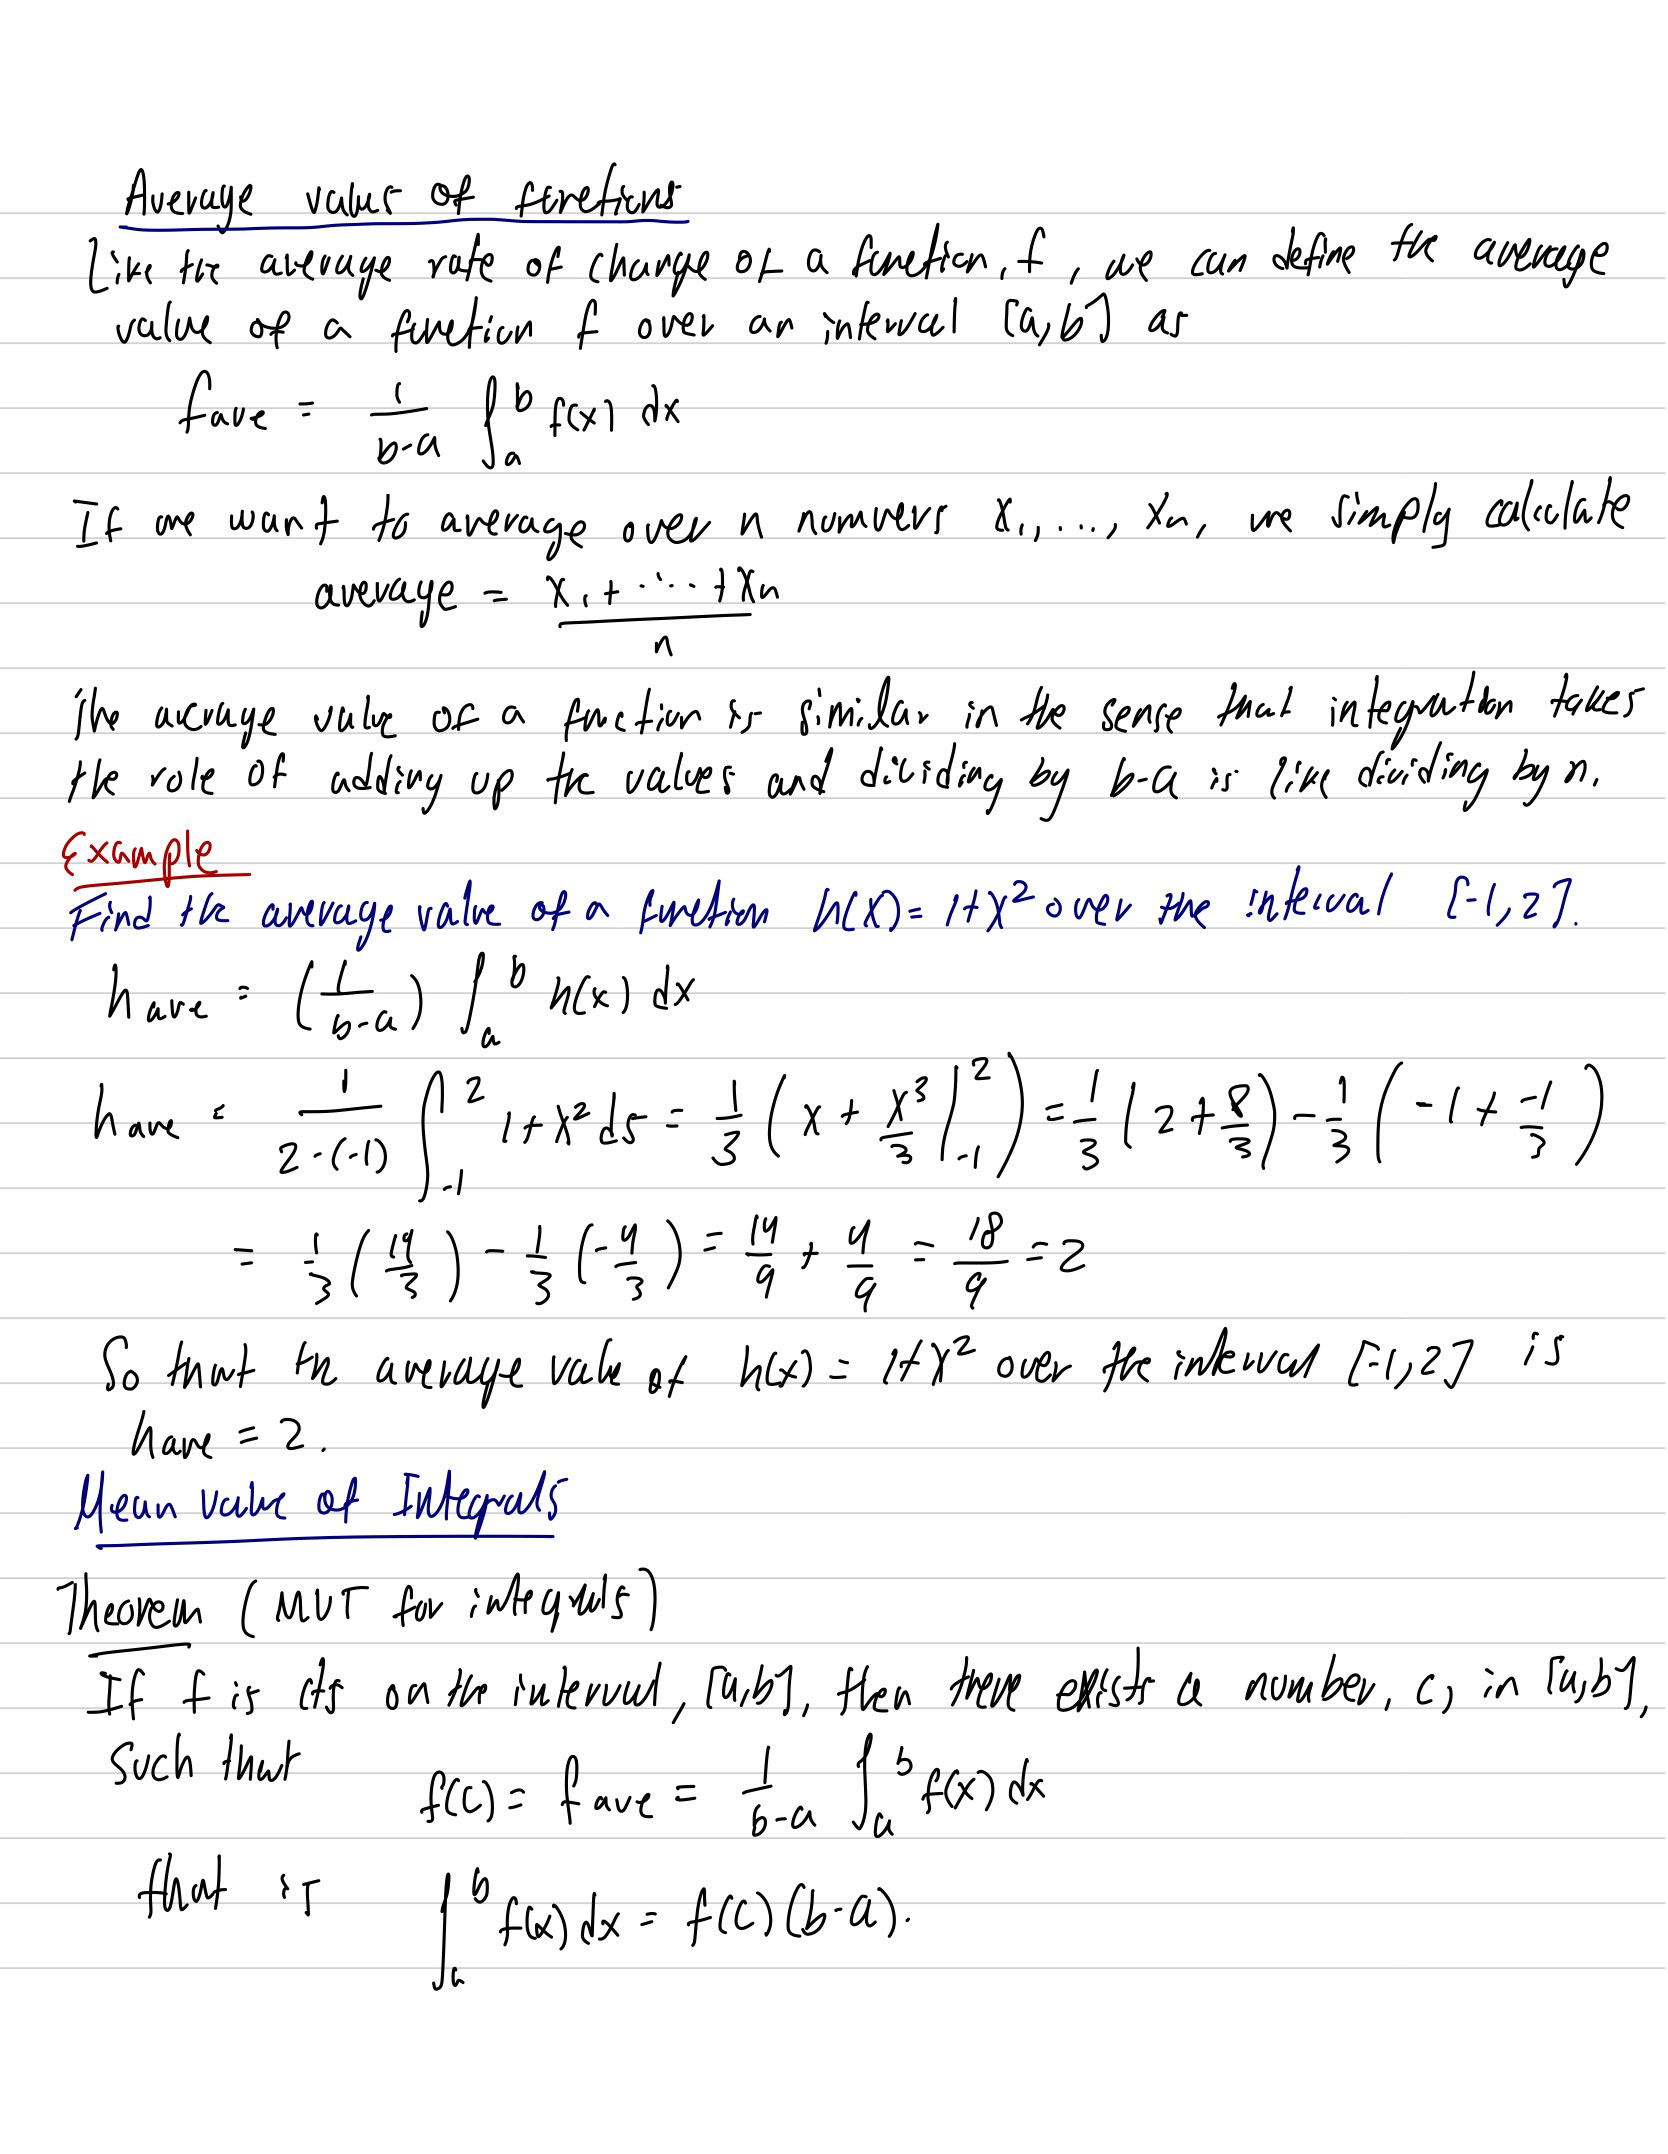 Average values of functions
Like the average rate of change of a function, f, we can define the average
value of a function f over an interval [a,b] as
f_ave = 1/(b-a) ∫_a^b f(x) dx
If one want to average over n numvers x_1, ..., x_n, we simply calculate
average = (x_1 + ..... + x_n)/n
The average value of a function is similar in the sense that integration takes
the role of adding up the values and dividing by b-a is like dividing by n.
Example
Find the average value of a function h(x) = 1+x^2 over the interval [-1,2].
h_ave = (1/(b-a)) ∫_a^b h(x) dx
h_ave = 1/(2-(-1)) ∫_{-1}^2 1+x^2 ds = 1/3 (x + x^3/3 |_{-1}^2) = 1/3 (2 + 8/3) - 1/3 (-1 + -1/3)
= 1/3 (14/3) - 1/3 (-4/3) = 14/9 + 4/9 = 18/9 = 2
So that the average value of h(x) = 1+x^2 over the interval [-1,2] is
h_ave = 2.
Mean value of Integrals
Theorem (MVT for integrals)
If f is cts on the interval, [a,b], then there exists a number, c, in [a,b],
such that
f(c) = f_ave = 1/(b-a) ∫_a^b f(x) dx
that is ∫_a^b f(x) dx = f(c)(b-a).